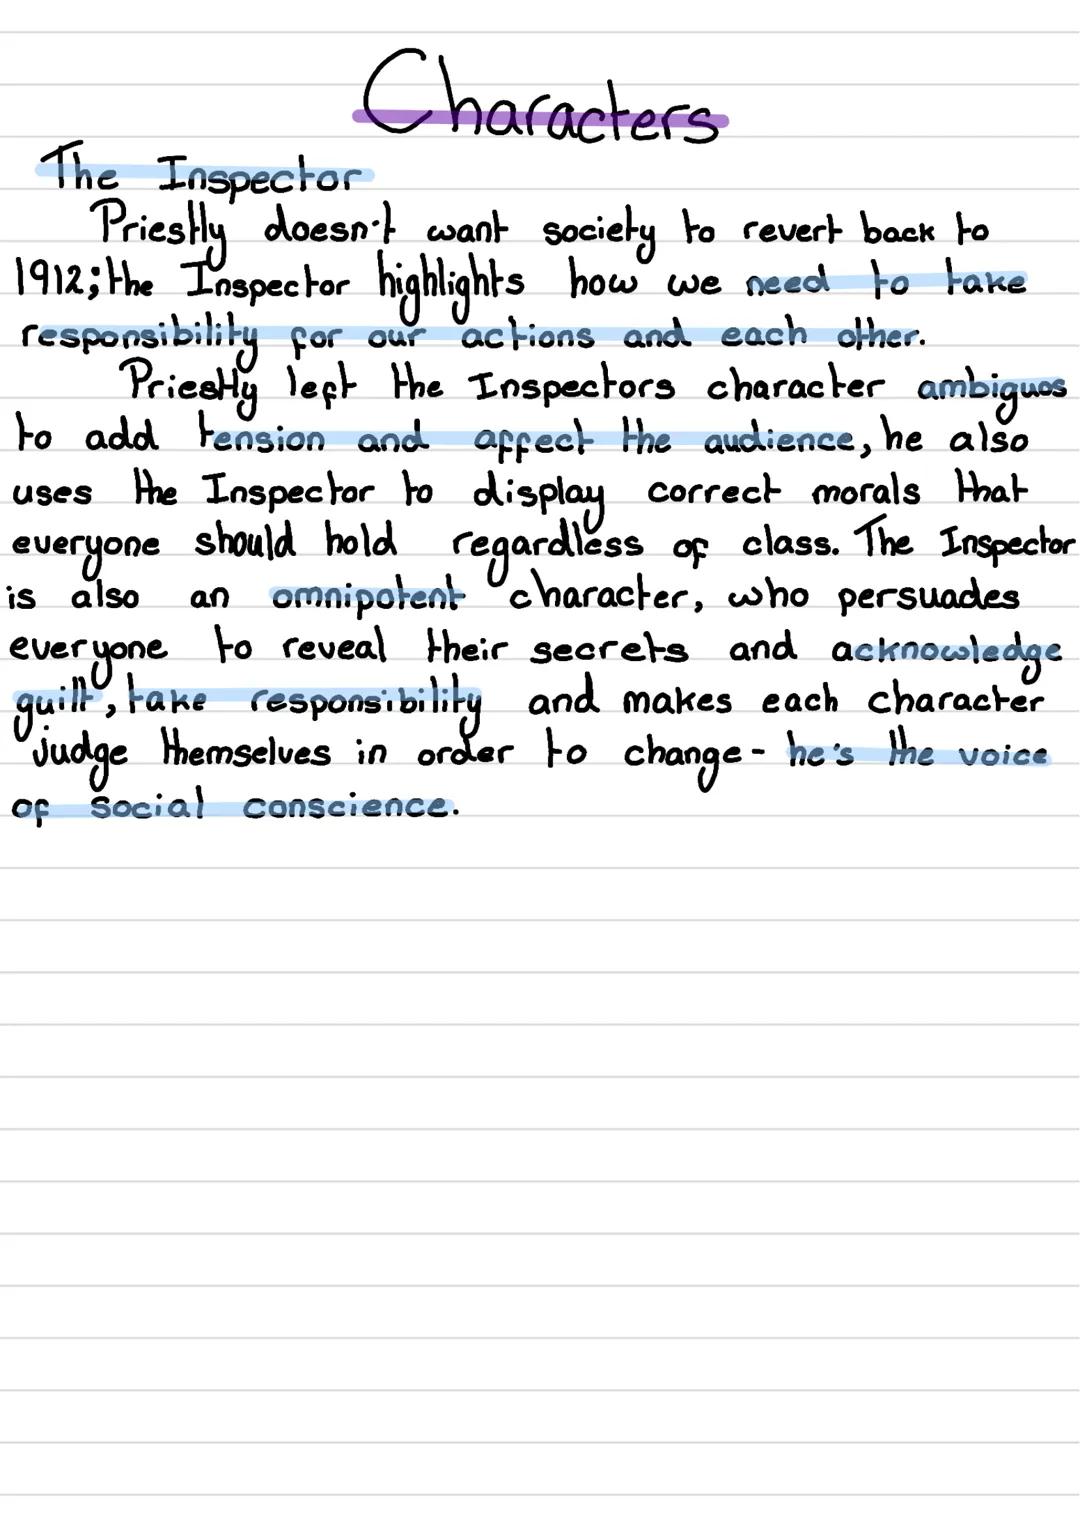 Characters
The Inspector
Priestly doesn't want society to revert back to
1912; the Inspector highlights how we need to take
responsibility for our actions and each other.
Priestly left the Inspectors character ambiguos
to add tension and affect the audience, he also
uses the Inspector to display correct morals that
everyone should hold regardless of class. The Inspector
is also an omnipotent character, who persuades
everyone to reveal their secrets and acknowledge
guilt, take responsibility and makes each character
judge themselves in order to change - he's the voice
of social conscience.